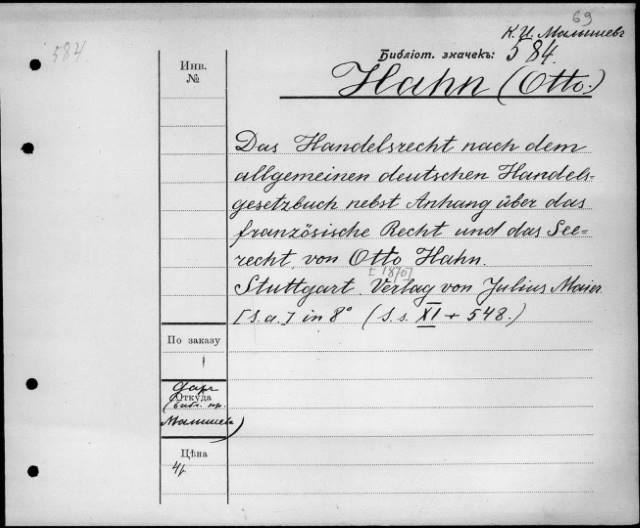 69
К. И. Малышевъ
584
Библіот. значекъ: 584.
Инв.
№
Hahn (Otto.)
Das Handelsrecht nach dem
allgemeinen deutschen Handels-
gesetzbuch nebst Anhang über das
französische Recht und das See-
recht, von Otto Hahn.
[1870]
Stuttgart. Verlag von Julius Maier
[s. a.] in 8° (S.s. XI + 548.)
По заказу
1
Даръ
Откуда
(библ. пр.
Малышева)
Цѣна